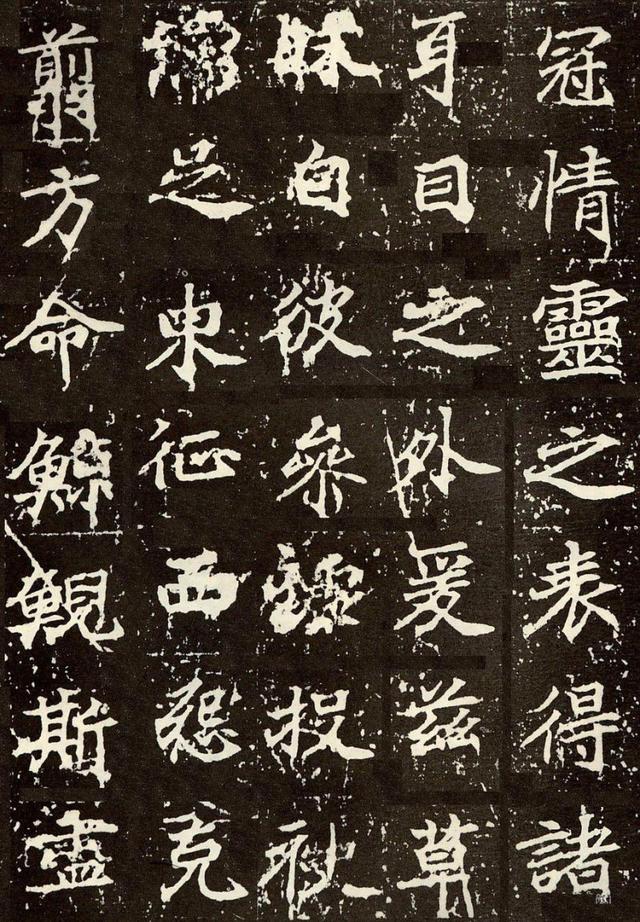 冠情靈之表得諸
耳目之外爰茲草
昧自彼參投袂
足東征西怨克
翦方命鯨鯢斯盡